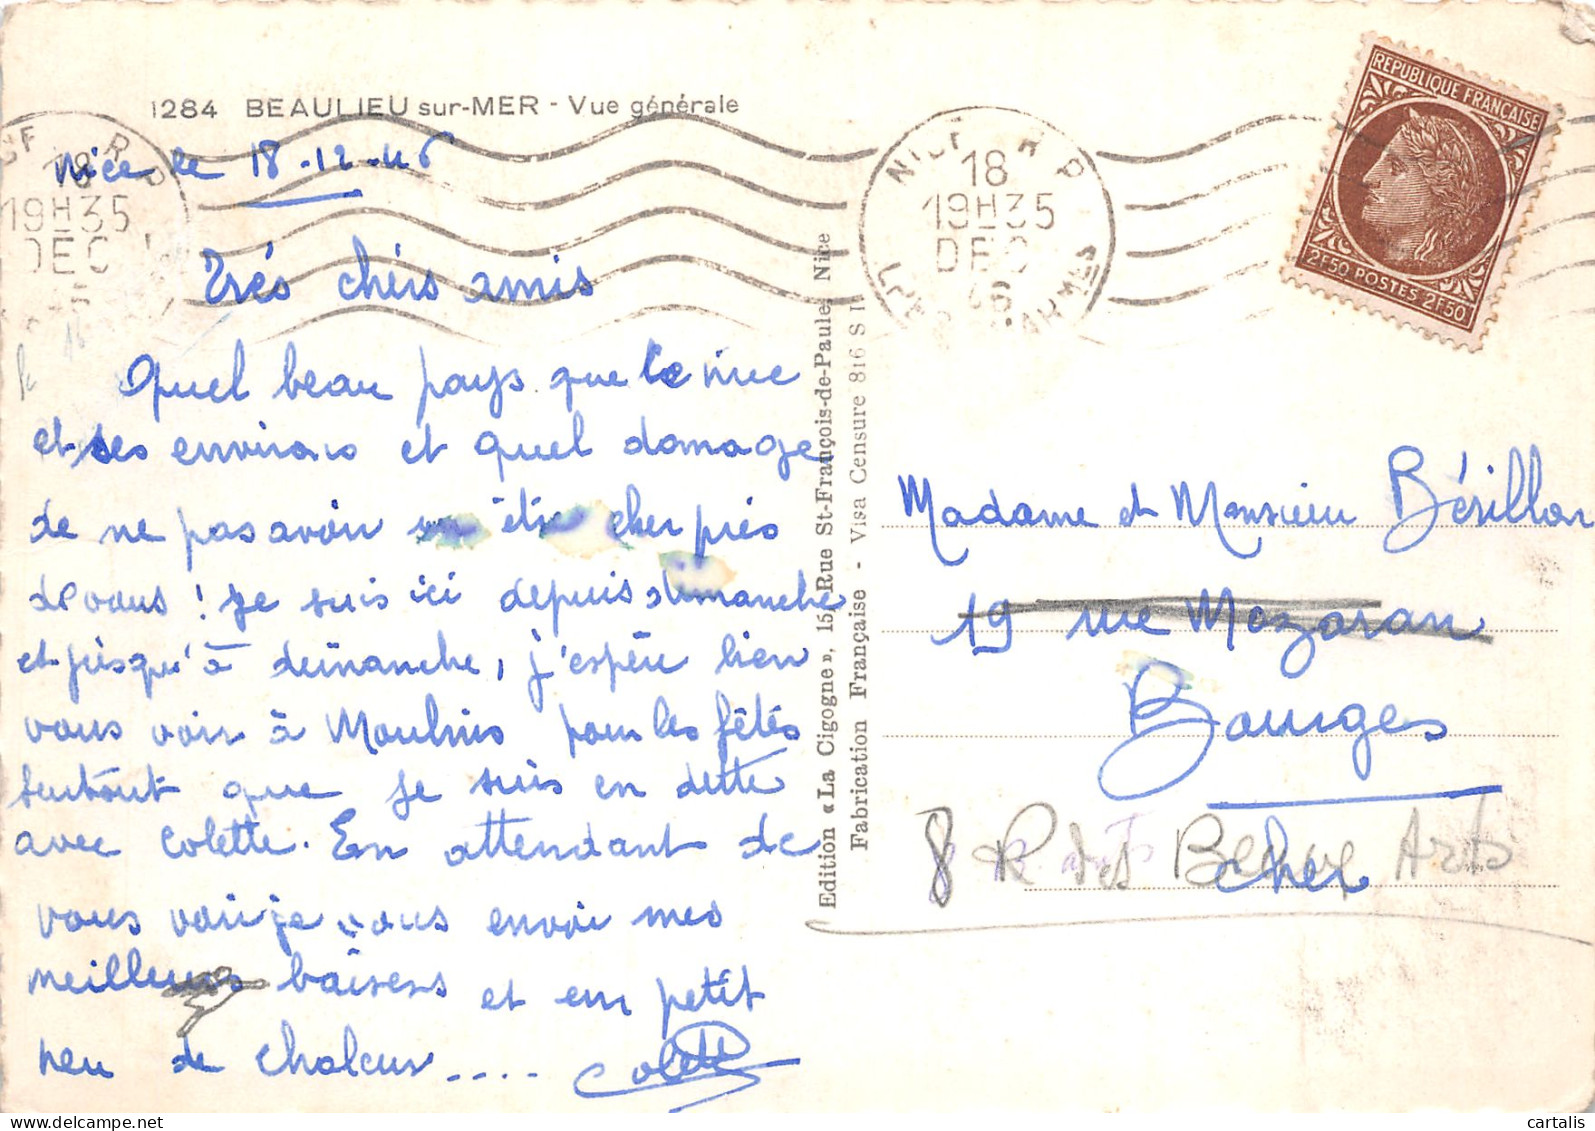 1284 BEAULIEU sur-MER - Vue générale
Nice le 18-12-46
Très chèrs amis
Quel beau pays que le nice
et ses environs et quel domage
de ne pas avoir un être cher près
de vous ! Je suis ici depuis dimanche
et jusqu'à dimanche, j'espère bien
vous voir à Moulins pour les fêtes
surtout que je suis en dette
avec Colette. En attendant de
vous voir je vous envoie mes
meilleurs baisers et un petit
peu de chaleur....
Colette
Edition « La Cigogne », 15, Rue St-François-de-Paule, Nice
Fabrication Française - Visa Censure 816 S I
18
19H35
DEC
18
19H35
DEC
46
REPUBLIQUE FRANÇAISE
2F50 POSTES 2F50
Madame et Monsieur Bérillon
19 rue Mazaran
Bourges
8 R des Beaux Arts
Cher
cartalis